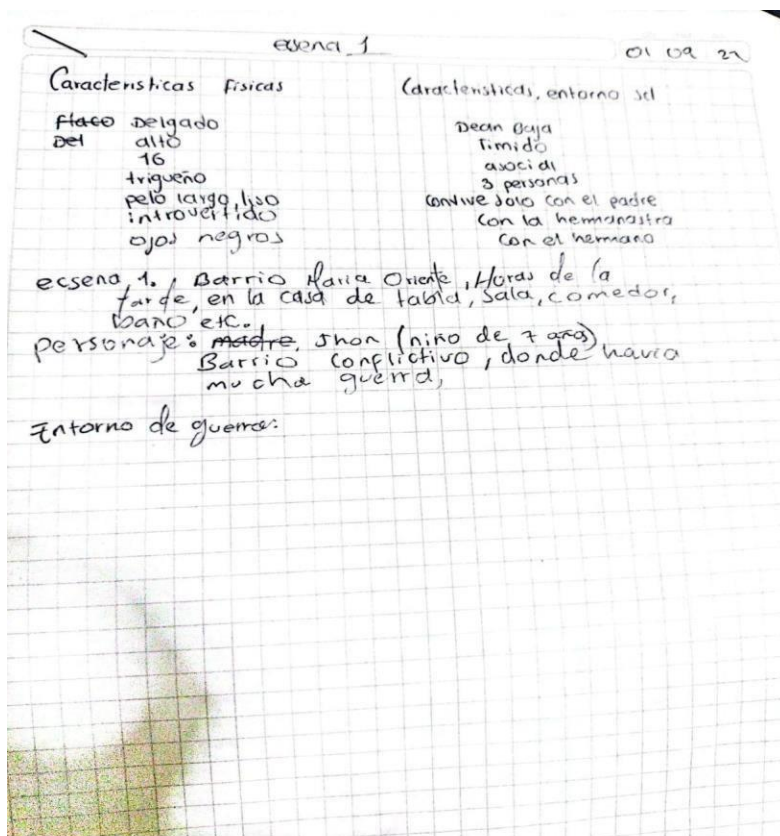 ecsena 1
01 09 22
Caracteristicas Fisicas
Flaco Delgado
Del alto
16
trigueño
pelo largo, liso
introvertido
ojos negros
Caracteristicas, entorno
Timido
asocial
3 personas
convive solo con el padre
con la hermanastra
con el hermano
ecsena, 1., Barrio Maria Oriente, Horas de la
tarde, en la casa de tabla, Sala, comedor,
baño etc.
personaje: madre, Jhon (niño de 7 años)
Barrio conflictivo, donde havia
mucha guerra,
Entorno de guerra: